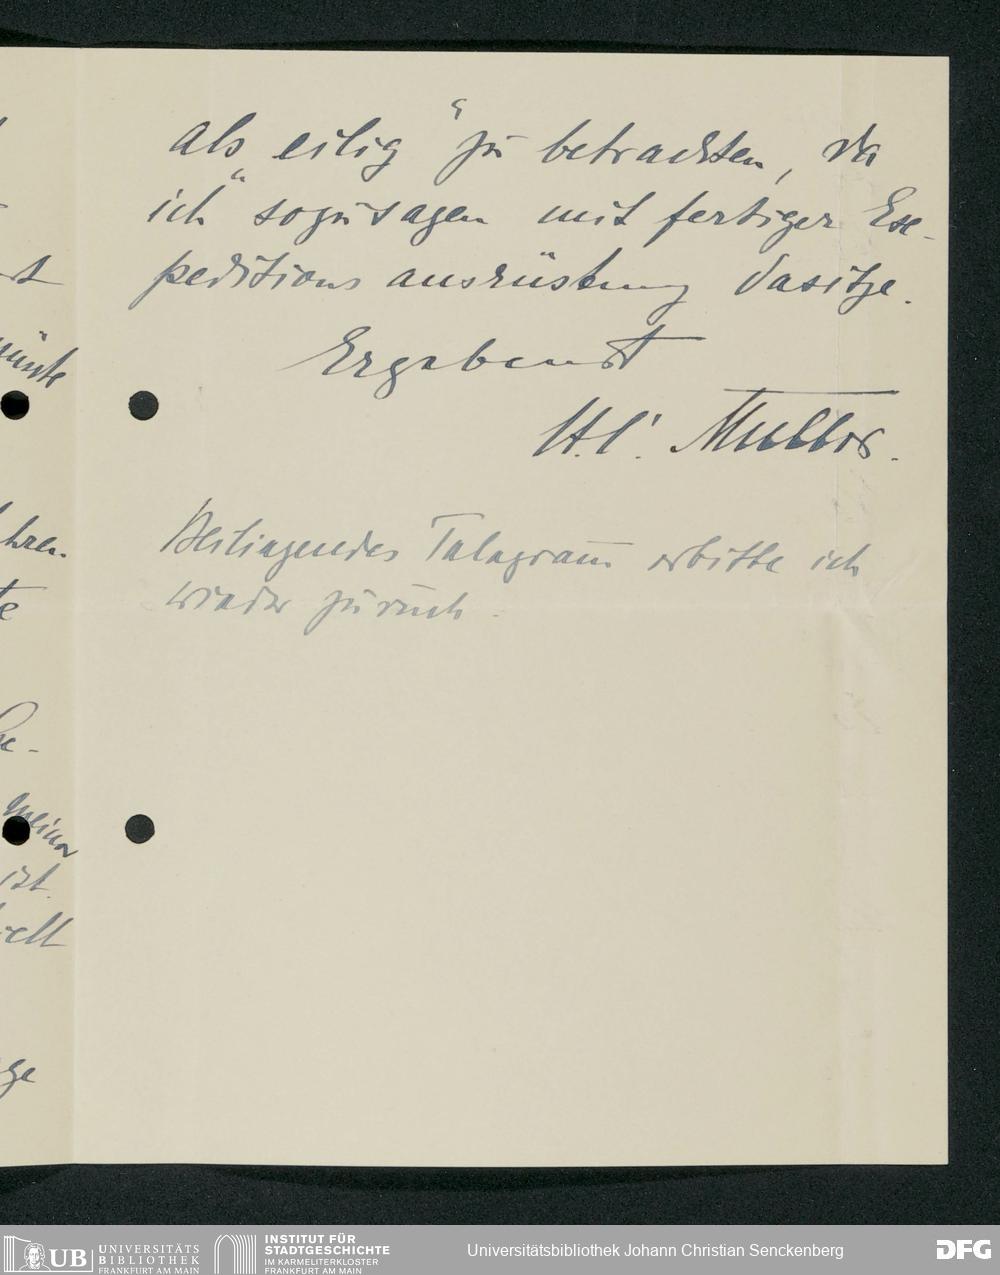 als „eilig“ zu betrachten, da
ich sozusagen mit fertiger Ex-
peditionsausrüstung dasitze.
Ergebenst
Müller.
Beiliegendes Telegramm erbitte ich
wieder zurück.
hren.
te
meiner
ist.
UB
UNIVERSITÄTS
BIBLIOTHEK
FRANKFURT AM MAIN
INSTITUT FÜR
STADTGESCHICHTE
IM KARMELITERKLOSTER
FRANKFURT AM MAIN
Universitätsbibliothek Johann Christian Senckenberg
DFG